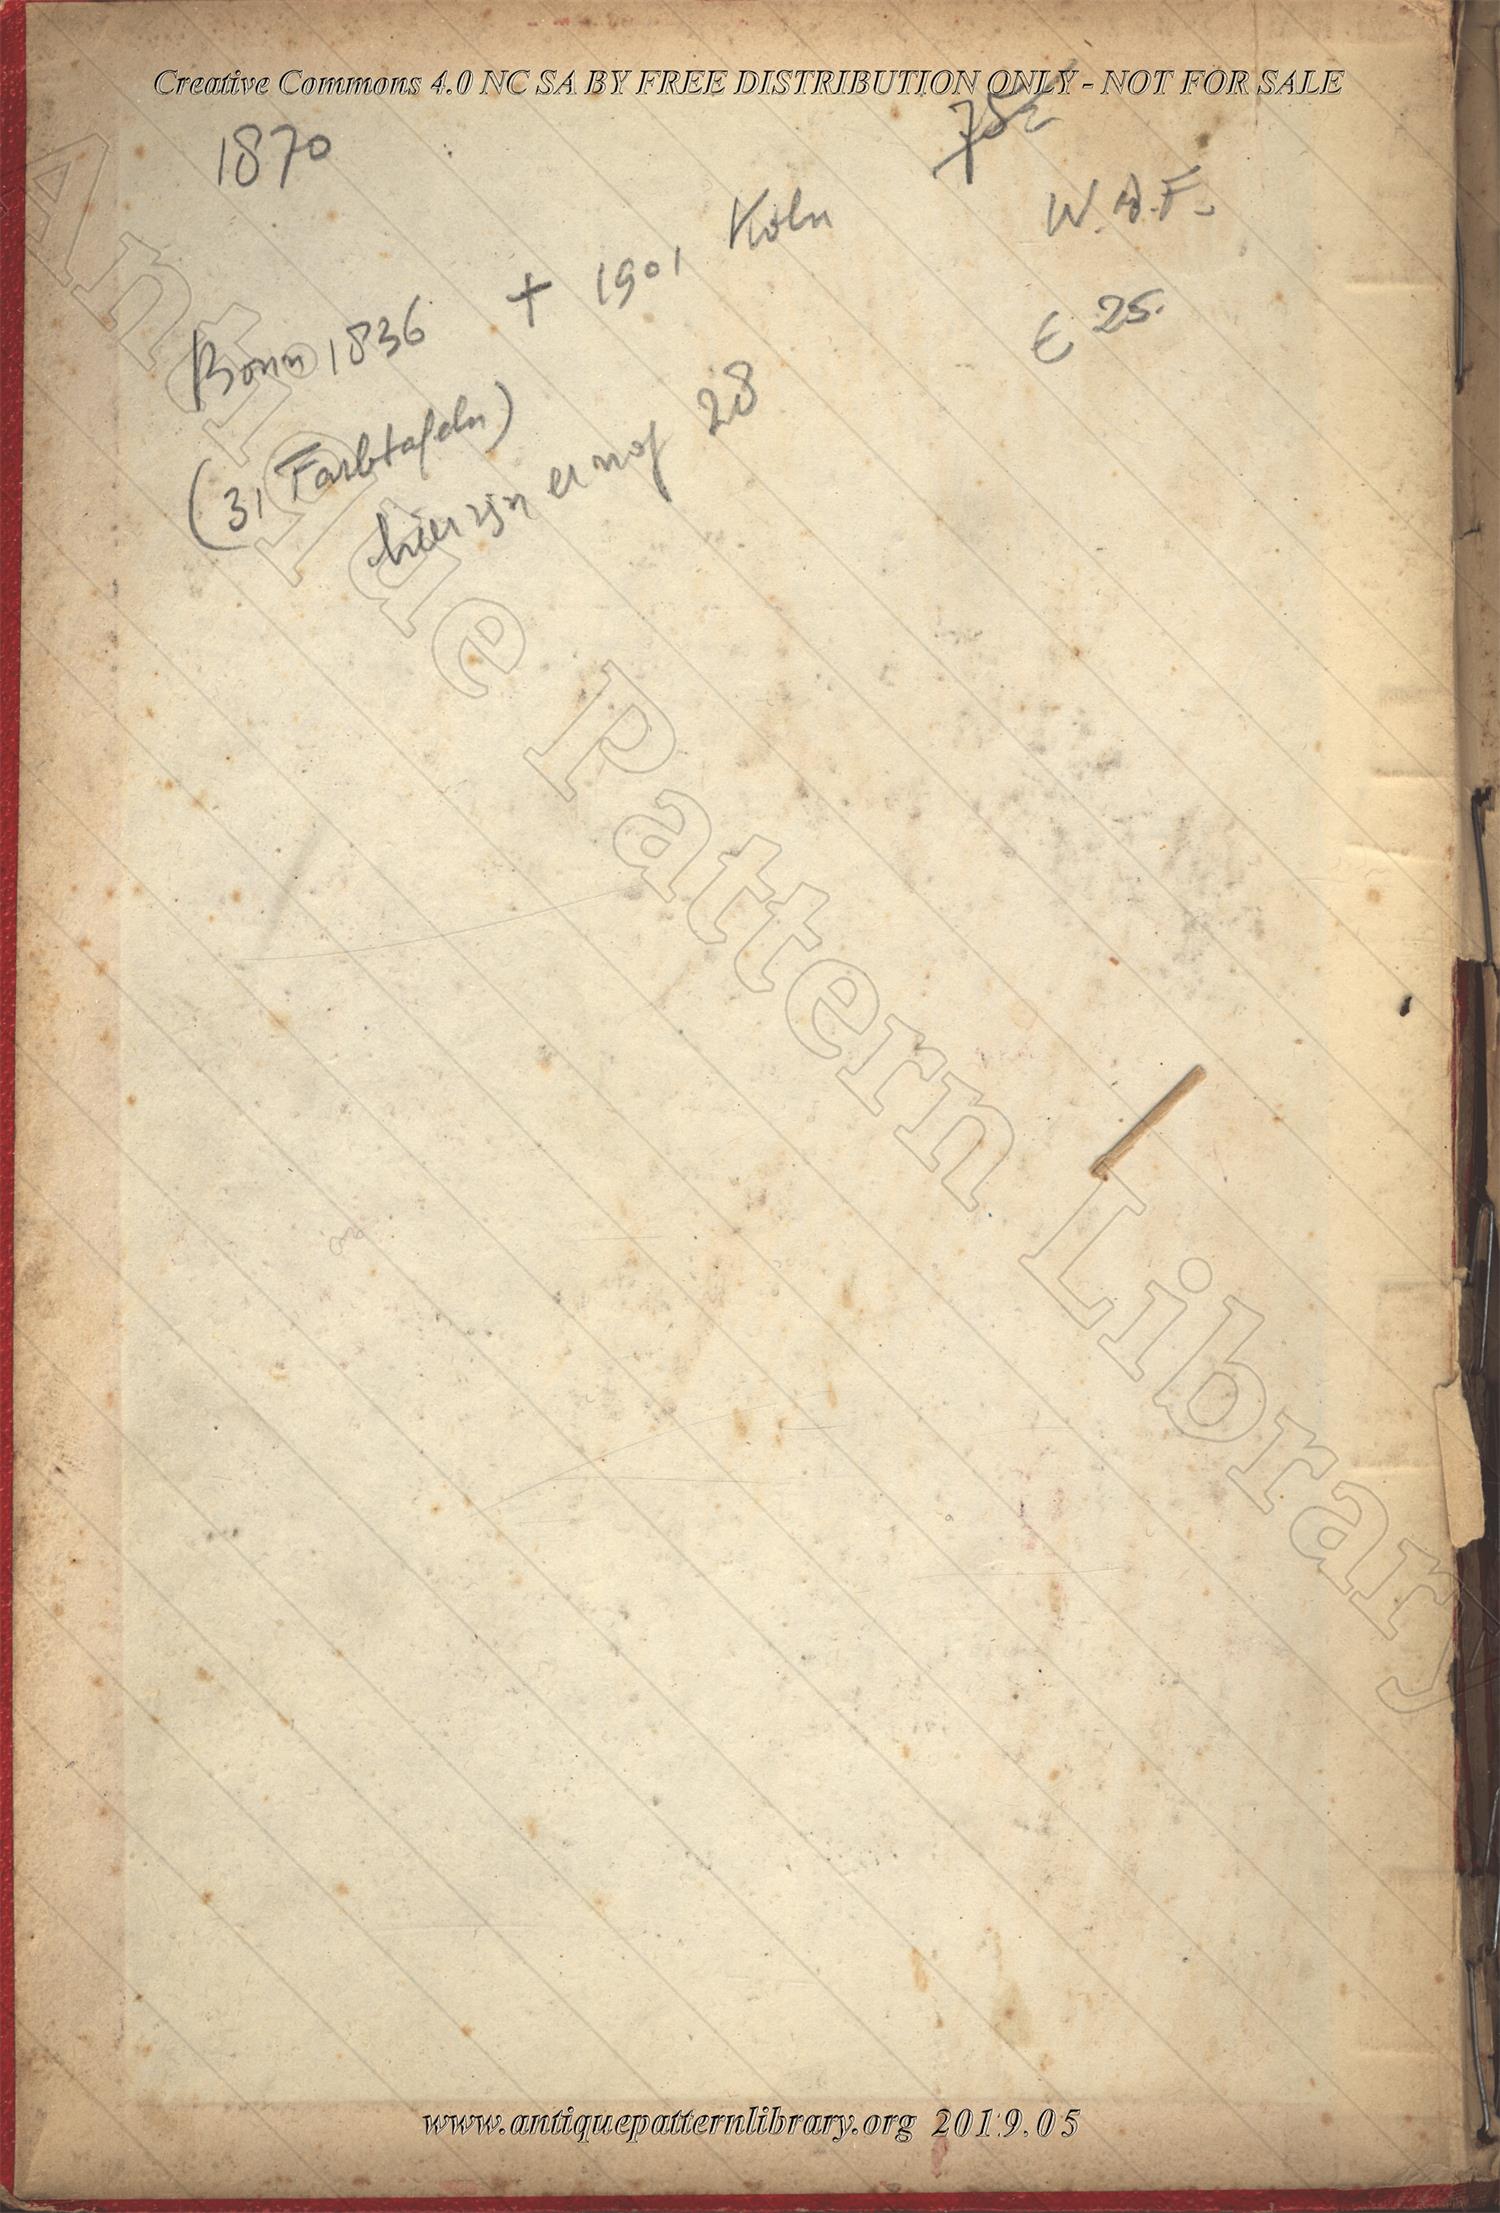 Creative Commons 4.0 NC SA BY FREE DISTRIBUTION ONLY - NOT FOR SALE
1870
W.A.F.
Bonn 1836 + 1901 Köln
€ 25.
(31 Farbtafeln)
hier zijn er nog 28
Antique Pattern Library
www.antiquepatternlibrary.org 2019.05